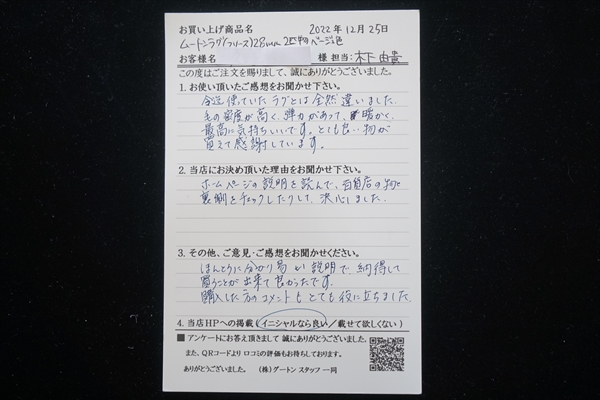 お買い上げ商品名 2022年12月25日
ムートンラグ(フリース)28mm 2匹物 ベージュ色
お客様名 様 担当: 木下 由貴
この度はご注文を賜りまして、誠にありがとうございました。
1. お使い頂いたご感想をお聞かせ下さい。
今迄使っていたラグとは全然違いました。
毛の密度が高く、弾力があって、暖かく、
最高に気持ちいいです。とても良い物が
買えて感謝しています。
2. 当店にお決め頂いた理由をお聞かせ下さい。
ホームページの説明を読んで、百貨店の物と
裏側をチェックしたりして、決心しました。
3. その他、ご意見・ご感想をお聞かせください。
ほんとうに分かり易い説明で、納得して
買うことが出来て良かったです。
購入した方のコメントもとても役に立ちました。
4. 当店HPへの掲載 (イニシャルなら良い/載せて欲しくない)
■ アンケートにお答え頂きまして 誠にありがとうございました。
また、QRコードより 口コミの評価もお待ちしております。
ありがとうございました。 (株)ダートン スタッフ一同